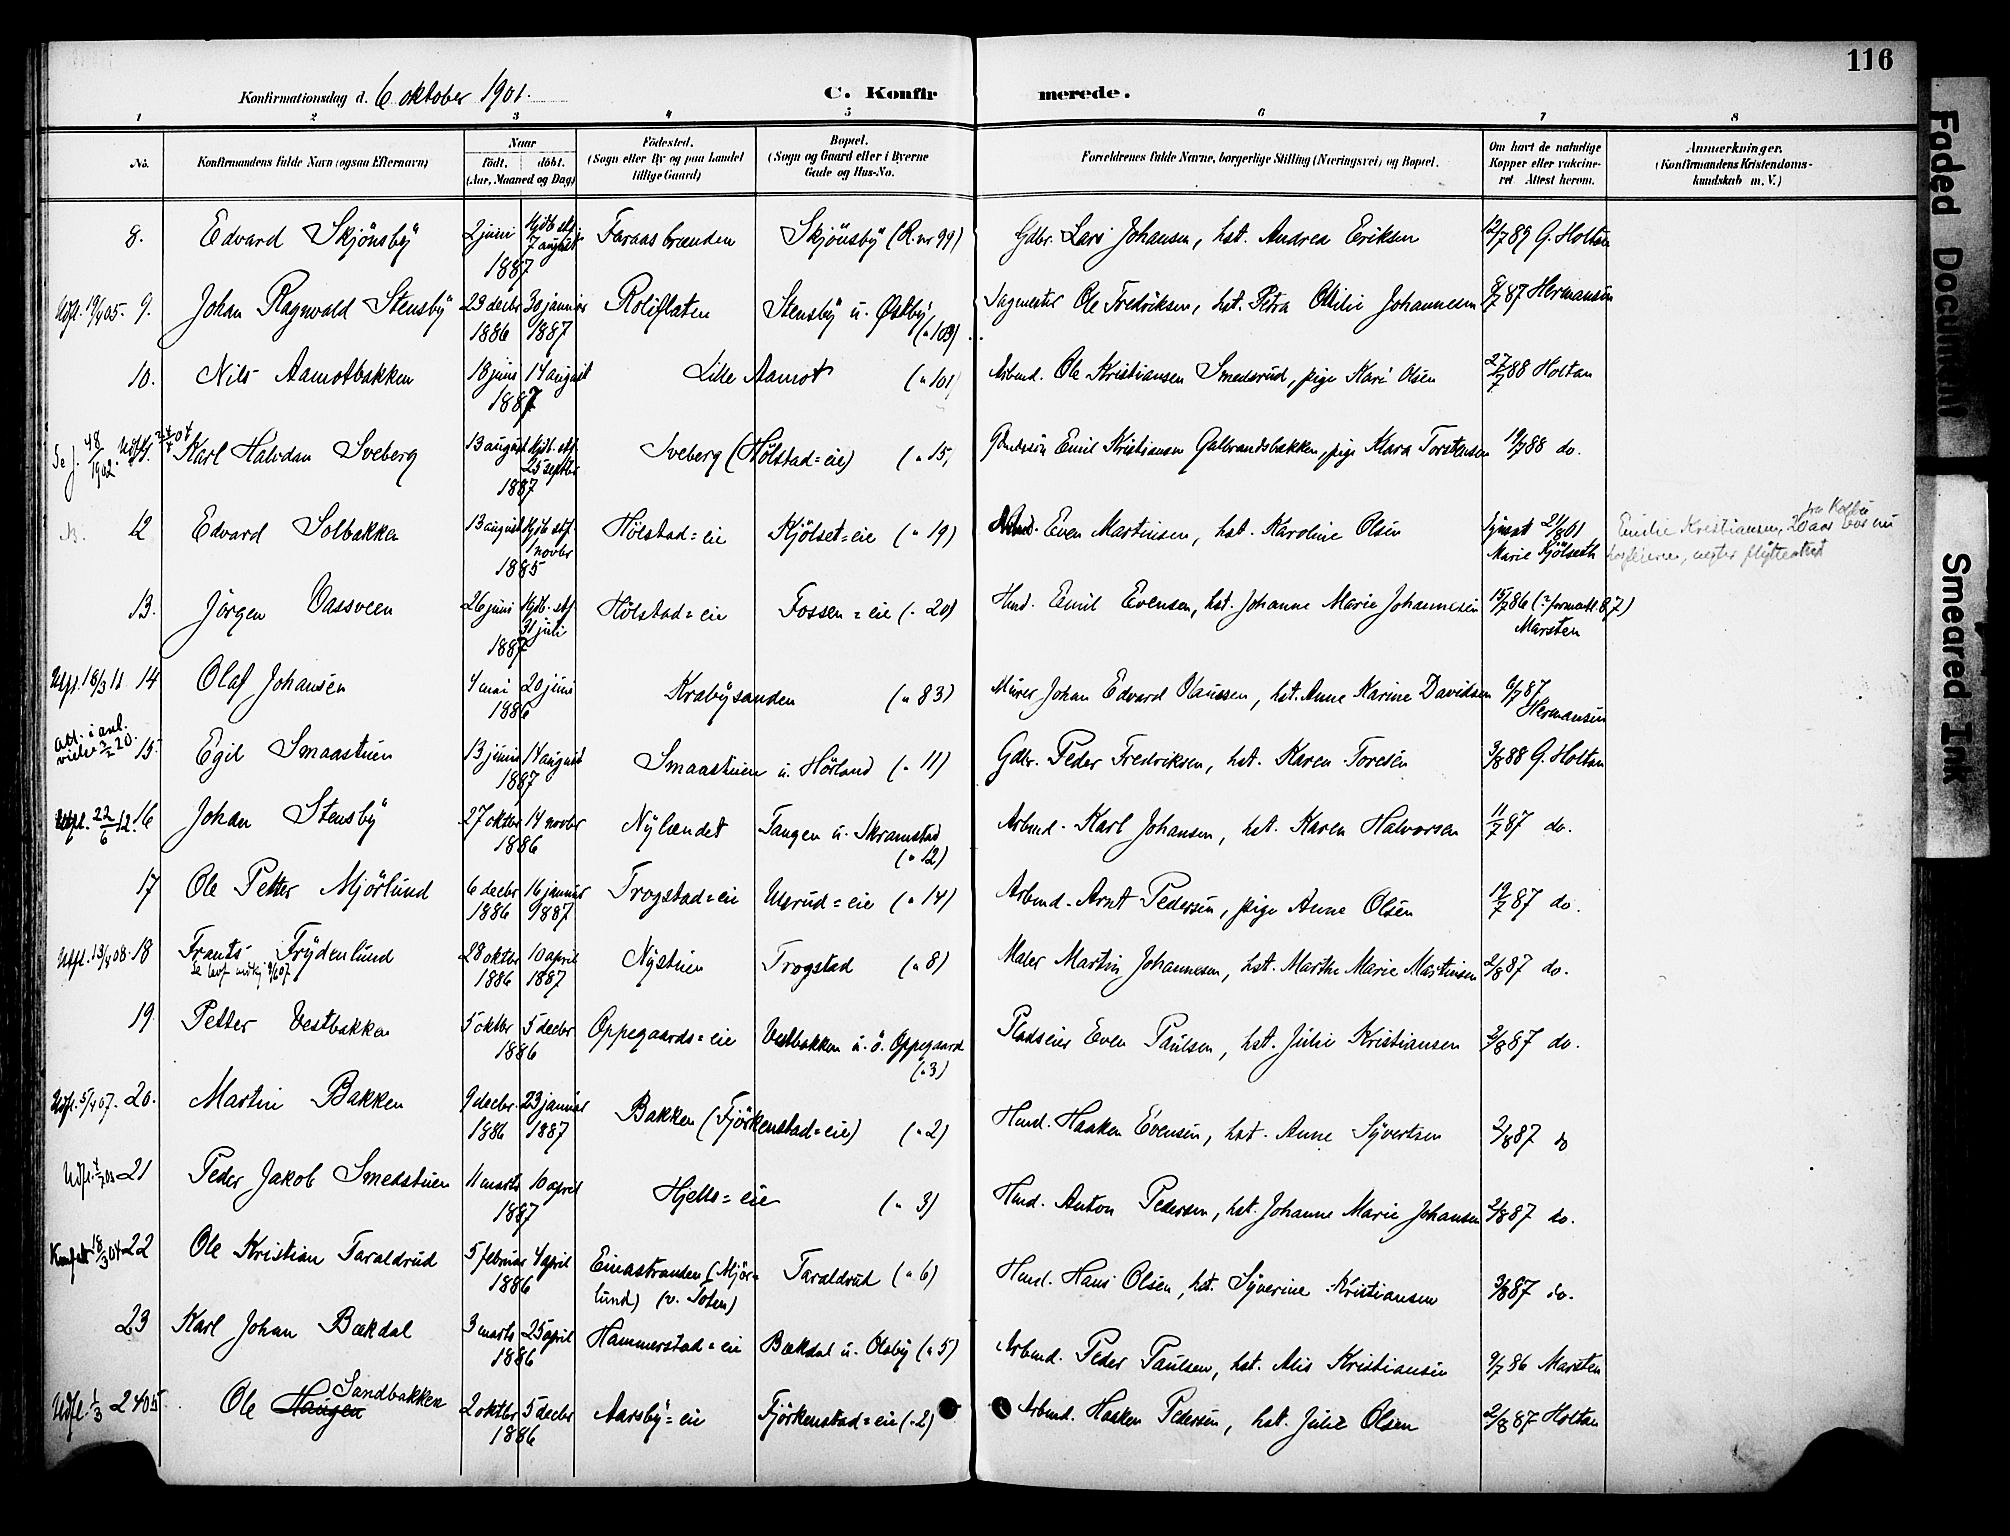 116
Konfirmationsdag d. 6 oktober 1901. C. Konfirmerede.
1 2 3 4 5 6 7 8
No. Konfirmandens fulde Navn (ogsaa Efternavn) Naar födt, döbt. (Aar, Maaned og Dag) Födested. (Sogn eller By og paa Landet tillige Gaard) Bopæl. (Sogn og Gaard eller i Byerne Gade og Hus-No. Forældrenes fulde Navne, borgerlige Stilling (Næringsvei) og Bopæl. Om havt de naturlige Kopper eller vaccineret Attest herom. Anmerkninger. (Konfirmandens Kristendomskundskab m. V.)
8. Edvard Skjönsby 2 juni 1887 Hjdb. stf. 7 august Faraasbrænden Skjönsby (R. nr 99) Gdbr. Lars Johansen, hst. Andrea Eriksen 12/7 89 G. Holtan
Udfl. 19/4 05. 9. Johan Ragnvald Stensby 29 decbr 1886 30 januar 1887 Roliflaten Stensby u. Østby (" 103) Sagmester Ole Fredriksen, hst. Petra Otilie Johannesen 8/7 87 Hermansen
10. Nils Aamotbakken 18 juni 14 august 1887 Lille Aamot (" 101) Arbmd. Ole Kristiansen Smedsrud, pige Kari Olsen 27/7 88 Holtan
Se j. 48/1902. Udfl. 04 Karl Halvdan Sveberg 13 august Hjdb. stf. 25 septbr 1887 Sveberg (Hölstad=eie) (" 15) Emil Kristiansen Galbrandsbakken, pige Klara Torstensen 19/7 88 do.
12 Edvard Solbakken 13 august Hjdb. stf. 1 novbr 1885 Hölstad=eie Kjölset=eie (" 19) Arbmd. Even Martinsen, hst. Karoline Olsen 21/8 01 Marie Kjölseth Emilie Kristiansen, fra Kolbu 20 aar
13. Jörgen Vassveen 26 juni Hjdb. stf. 31 juli 1887 Hölstad=eie Fossen=eie (" 20) Hmd. Emil Evensen, hst. Johanne Marie Johannesen 15/7 86 (? formentl. 87) Marsten
Udfl. 18/3 11 14 Olaf Johansen 4 mai 20 juni 1886 Krabysanden (" 83) Murer Johan Edvard Olaussen, hst. Anne Karine Davidsen 6/7 87 Hermansen
Att. i anl. vielse 3/2 20. 15. Egil Smaastuen 13 juni 14 august 1887 Smaastuen u. Hörland (" 11) Gdbr. Peder Fredriksen, hst. Karen Toresen 3/8 88 G. Holtan
Udfl. 22/6 12. 16 Johan Stensby 27 oktbr 14 novbr 1886 Nylændet Tangen u. Skramstad (" 12) Arbmd. Karl Johansen, hst. Karen Halvorsen 11/7 87 do.
17 Ole Petter Mjörlund 6 decbr 1886 16 januar 1887 Trogstad=eie Ulsrud=eie (" 14) Arbmd. Arnt Pedersen, pige Anne Olsen 19/7 87 do.
Udfl. 13/4 08. 18 Frants Frydenlund 28 oktbr 1886 10 april 1887 Nystuen Trogstad (" 8) Maler Martin Johannesen, hst. Marthe Marie Martinsen 2/8 87 do.
19. Petter Vestbakken 5 oktbr 5 decbr 1886 Oppegaards=eie Vestbakken u. ö. Oppegaard (" 3) Pladseier Even Paulsen, hst. Julie Kristiansen 2/8 87 do.
Udfl. 5/4 07. 20. Martin Bakken 9 decbr. 1886 23 januar 1887 Bakken (Fjörkenstad=eie) (" 2) Hmd. Haaken Evensen, hst. Anne Syvertsen 2/8 87 do
Udfl. 21 Peder Jakob Smedstuen 11 marts 10 april 1887 Hjells=eie (" 3) Hmd. Anton Pedersen, hst. Johanne Marie Johansen 2/8 87 do.
18/3 04 22 Ole Kristian Taraldrud 5 februar 4 april 1886 Einastranden (Mjörlund) (v. Toten) Taraldrud (" 6) Hmd. Hans Olsen, hst. Syverine Kristiansen 3/8 87 do.
23 Karl Johan Bækdal 3 marts 25 april 1886 Hammerstad=eie Bækdal u. Olsby (" 5) Arbmd. Peder Paulsen, hst. Alis Kristiansen 9/7 86 Marsten
Udfl. 1/3 05. 24 Ole Haugen Sandbakken 2 oktbr 5 decbr 1886 Aarsby=eie Fjörkenstad=eie (" 2) Arbmd. Haaken Pedersen, hst. Julie Olsen 2/8 87 Holtan
Faded Document
Smeared Ink